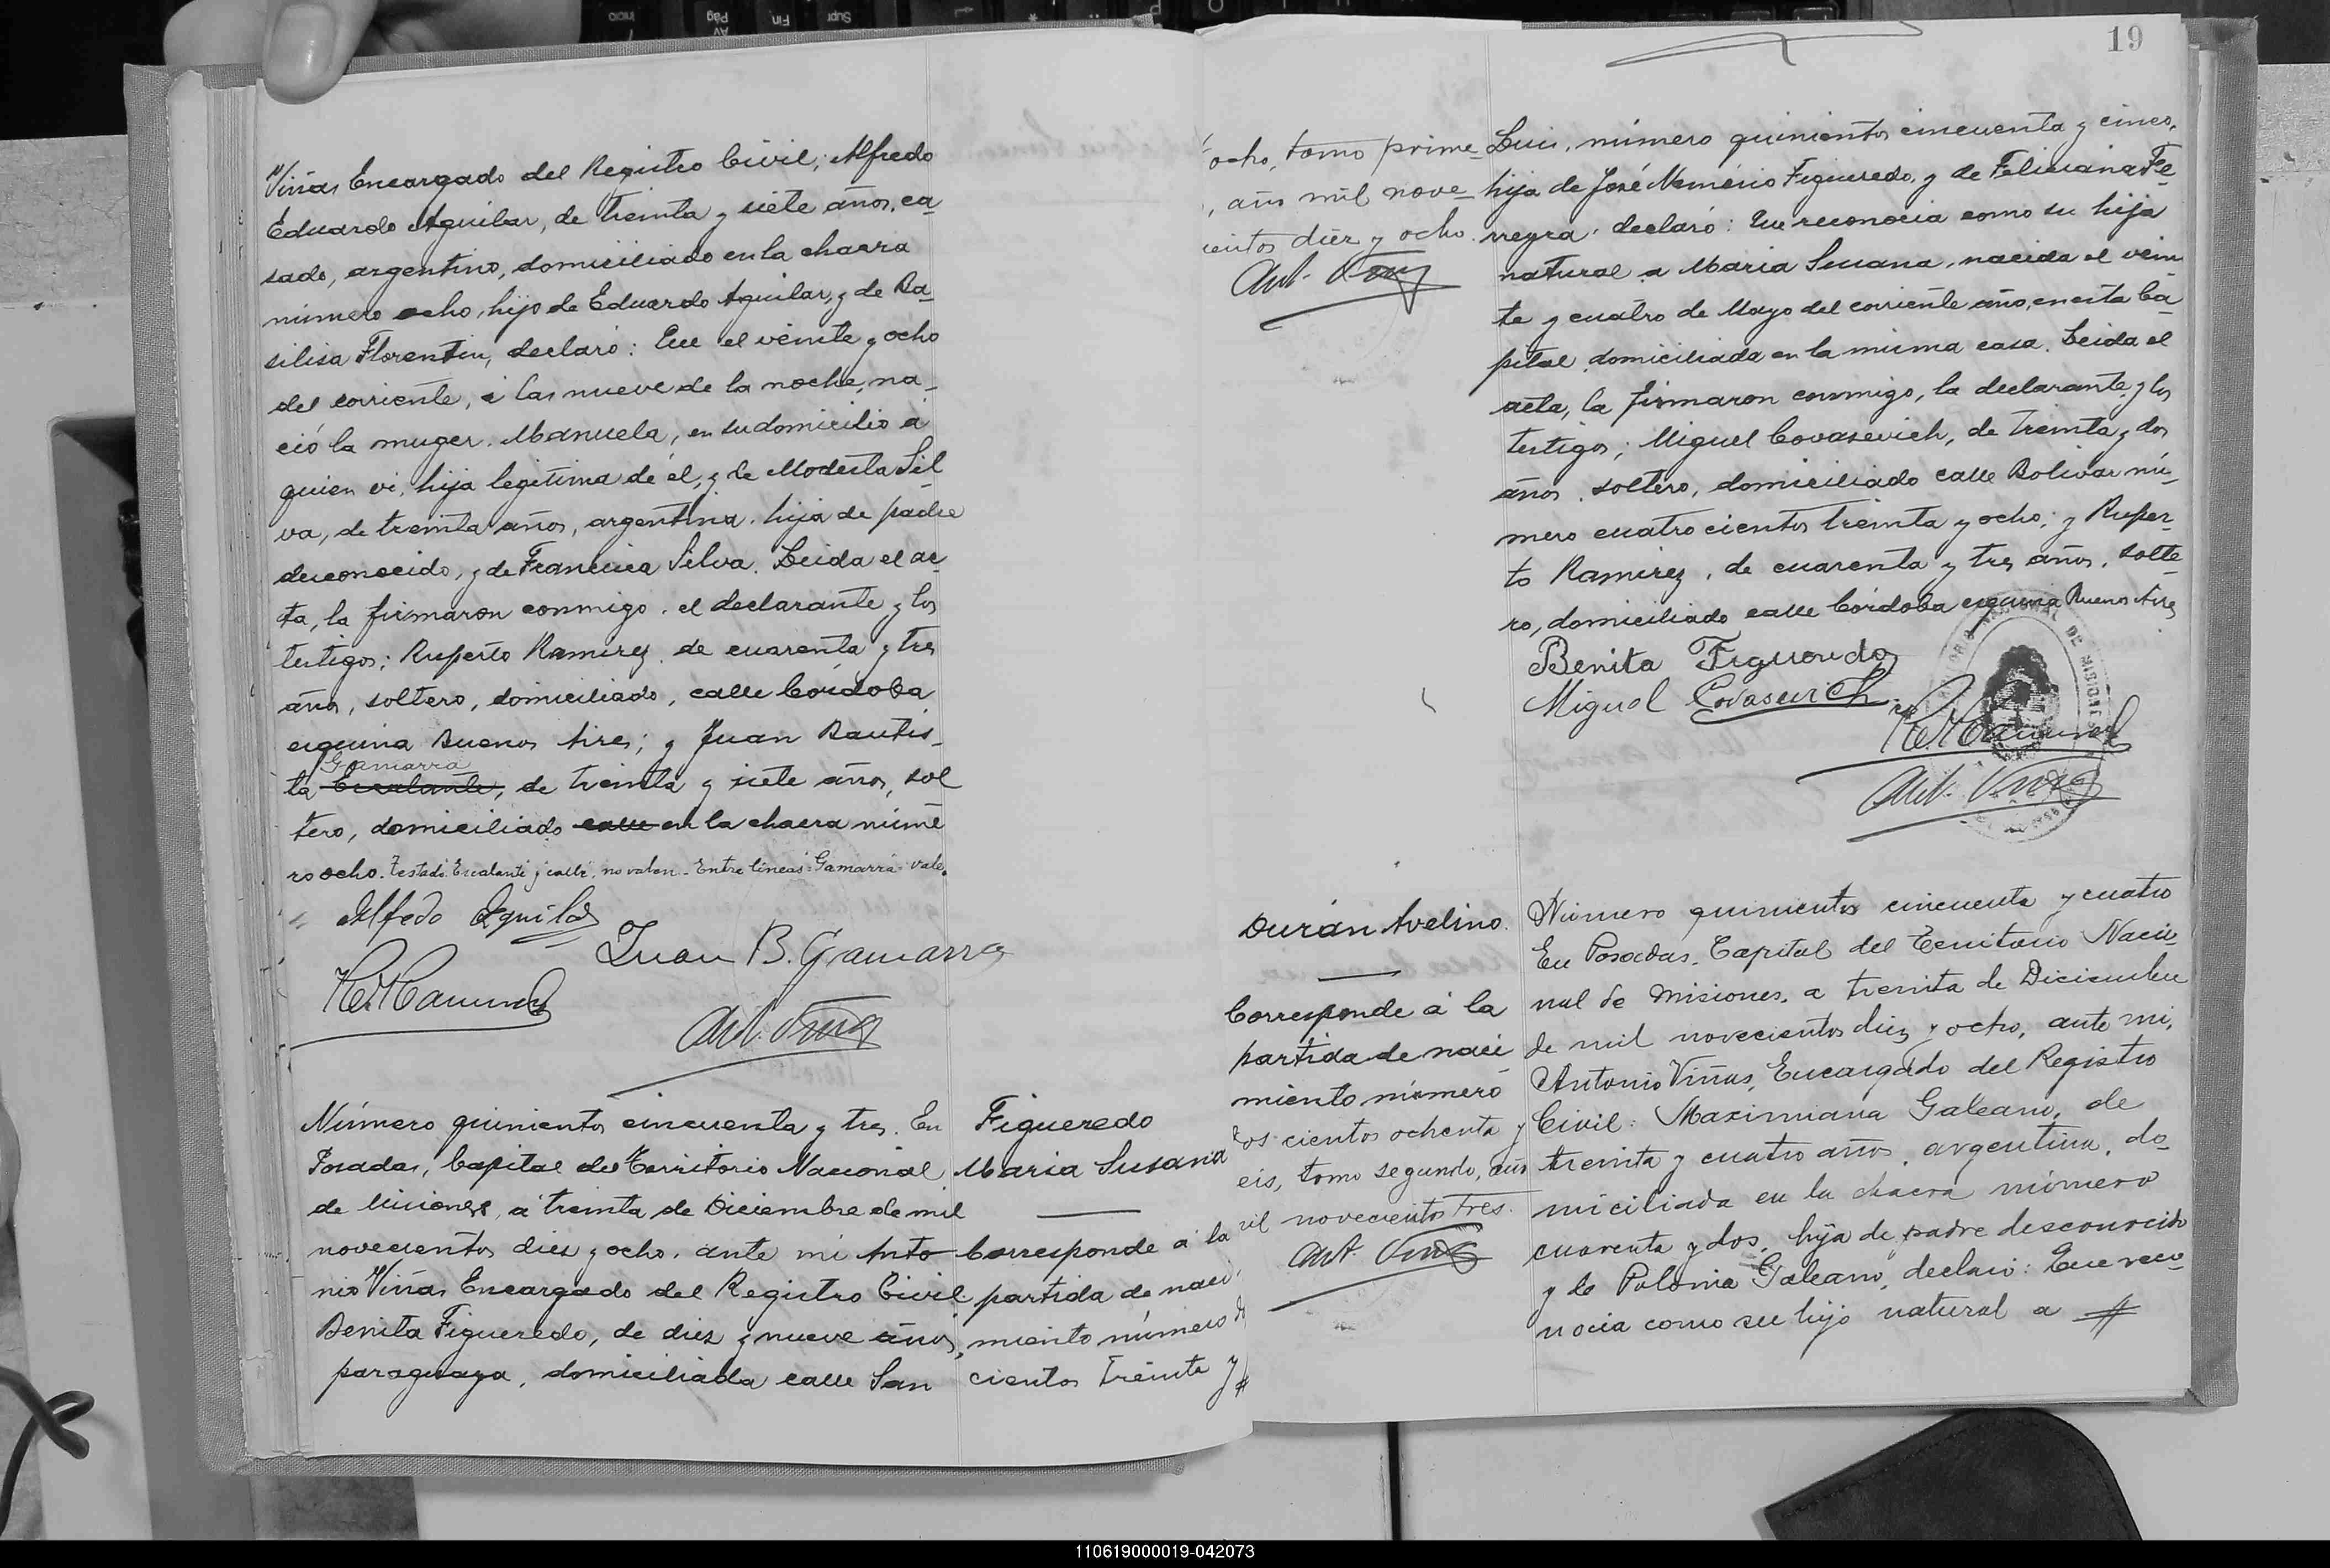 Viñas Encargado del Registro Civil; Alfredo
Eduardo Aguilar, de treinta y siete años, ca_
sado, argentino, domiciliado en la chacra
número ocho, hijo de Eduardo Aguilar, y de Ba_
silisa Florentin, declaró: Que el veinte y ocho
del corriente, á las nueve de la noche, na_
ció la muger. Manuela, en su domicilio á
quien vi, hija legitima de él, y de Modesta Sil_
va, de treinta años, argentina. hija de padre
desconocido, y de Francisca Silva. Leida el ac_
ta, la firmaron conmigo. el declarante y los
testigos; Ruperto Ramirez, de cuarenta y tres
años, soltero, domiciliado, calle Córdoba
esquina Buenos Aires; y Juan Bautis_
Gamarra
ta Escalante, de treinta y siete años, sol_
tero, domiciliado calle en la chacra núme_
ro ocho. Testado: Escalante y calle, no valen - Entre líneas: Gamarra: vale.
Alfredo Aguilar
Juan B. Gamarra
R. Ramirez
Ant. Viñas
Número quinientos cincuenta y tres. En
Posadas, Capital del Territorio Nacional
de Misiones, á treinta de Diciembre de mil
novecientos diez y ocho. ante mi Anto_
nio Viñas Encargado del Registro Civil
Benita Figueredo, de diez y nueve años,
paraguaya, domiciliada calle San
Figueredo
Maria Susana
Corresponde á la
partida de naci_
miento número
cientos treinta y #
19
ocho, tomo prime_
, año mil nove_
cientos diez y ocho.
Ant. Viñas
Luis, número quinientos cincuenta y cinco,
hija de José Nemésio Figueredo, y de Feliciana Fe_
rreyra. declaró: Que reconocia como su hija
natural a Maria Susana, nacida el vein_
te y cuatro de Mayo del corriente año, en esta Ca_
pital, domiciliada en la misma casa. Leida el
acta, la firmaron conmigo, la declarante, y los
testigos; Miguel Covasevich, de treinta y dos
años, soltero, domiciliado calle Bolivar nú_
mero cuatrocientos treinta y ocho; y Ruper_
to Ramirez, de cuarenta y tres años, solte_
ro, domiciliado calle Córdoba esquina Buenos Aires
Benita Figueredo
Miguel Covasevich
R. Ramirez
Ant. Viñas
Durán Avelino.
Corresponde á la
partida de naci
miento número
dos cientos ochenta y
seis, tomo segundo, año
mil novecientos tres.
Ant. Viñas
Número quinientos cincuenta y cuatro
En Posadas, Capital del Territorio Nacio_
nal de Misiones, a treinta de Diciembre
de mil novecientos diez y ocho, ante mi,
Antonio Viñas, Encargado del Registro
Civil: Maximiana Galeano, de
treinta y cuatro años, argentina, do_
miciliada en la chacra número
cuarenta y dos, hija de padre desconocido
y de Polonia Galeano, declaró: Que reco_
nocia como su hijo natural a #
110619000019-042073